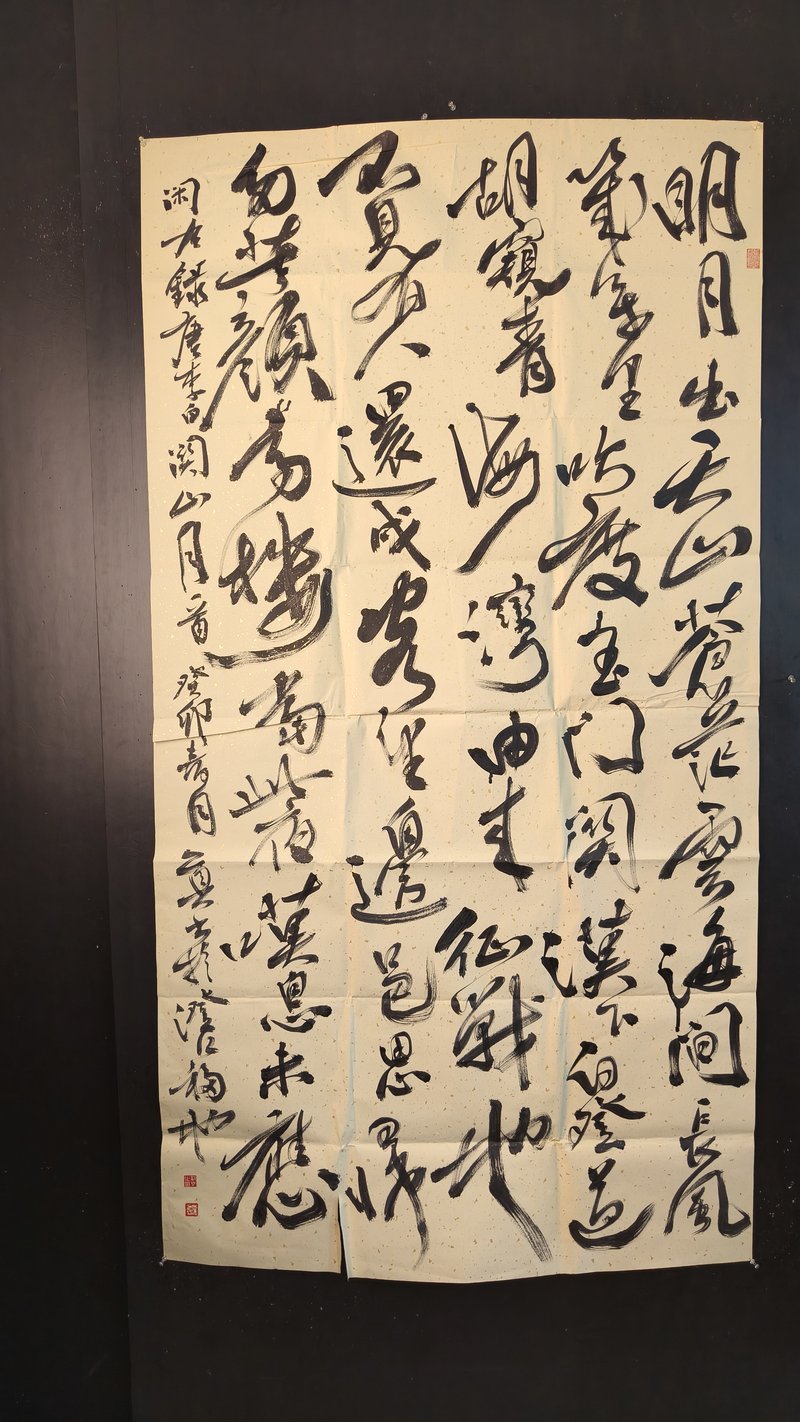 明月出天山蒼茫雲海間長風
幾里吹度玉门関漢下白登道
胡窺青海灣由来征戰地
不見有人還戍客望邊邑思歸
多苦顏高樓當此夜嘆息未應
闲右録唐李白関山月一首癸卯春月於澄福地